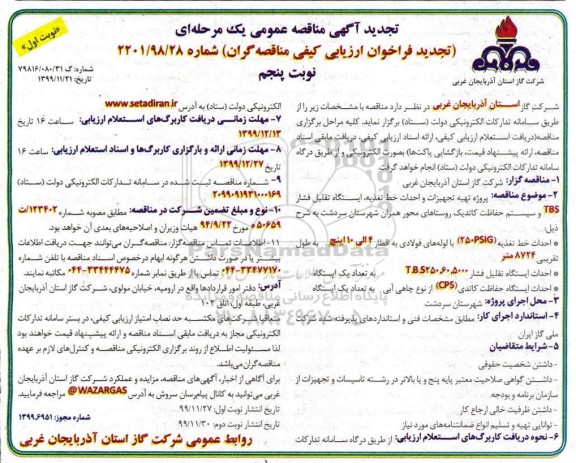 «نوبت اول»
تجدید آگهی مناقصه عمومی یک مرحله‌ای
(تجدید فراخوان ارزیابی کیفی مناقصه‌گران) شماره ۲۲۰۱/۹۸/۲۸
نوبت پنجم
شماره: گ ۷۹۸۱۶/۰۸۰/۳۱
تاریخ: ۱۳۹۹/۱۱/۲۱
شرکت گاز استان آذربایجان غربی
شرکت گاز استان آذربایجان غربی در نظر دارد مناقصه با مشخصات زیر را از
طریق سامانه تدارکات الکترونیکی دولت (ستاد) برگزار نماید. کلیه مراحل برگزاری
مناقصه(دریافت استعلام ارزیابی کیفی، ارائه اسناد ارزیابی کیفی، دریافت مابقی اسناد
مناقصه، ارائه پیشنهاد قیمت، بازگشایی پاکت‌ها) بصورت الکترونیکی و از طریق درگاه
سامانه تدارکات الکترونیکی دولت (ستاد) انجام خواهد گرفت.
۱- مناقصه گزار: شرکت گاز استان آذربایجان غربی
۲- موضوع مناقصه: پروژه تهیه تجهیزات و احداث خط تغذیه، ایستگاه تقلیل فشار
TBS و سیستم حفاظت کاتدیک روستاهای محور همران شهرستان سردشت به شرح
ذیل:
احداث خط تغذیه (۲۵۰PSIG) با لوله‌های فولادی به اقطار ۴ الی ۱۰ اینچ به طول
تقریبی ۸۷۲۴ متر
احداث ایستگاه تقلیل فشار T.B.S۲۵۰.۶۰.۵۰۰۰ به تعداد یک ایستگاه
احداث ایستگاه حفاظت کاتدی (CPS) از نوع چاهی آنی به تعداد یک ایستگاه
۳- محل اجرای پروژه: شهرستان سردشت
۴- استاندارد اجرای کار: مطابق مشخصات فنی و استانداردهای پذیرفته‌شده شرکت
ملی گاز ایران
۵- شرایط متقاضیان
- داشتن شخصیت حقوقی
- داشتن گواهی صلاحیت معتبر پایه پنج و یا بالاتر در رشته تاسیسات و تجهیزات از
سازمان برنامه و بودجه
- داشتن ظرفیت خالی ارجاع کار
- توانایی تهیه و تسلیم انواع ضمانتنامه‌های مورد نیاز
۶- نحوه دریافت کاربرگ‌های استعلام ارزیابی: از طریق درگاه سامانه تدارکات
الکترونیکی دولت (ستاد) به آدرس www.setadiran.ir
۷- مهلت زمانی دریافت کاربرگ‌های استعلام ارزیابی: ساعت ۱۶ تاریخ
۱۳۹۹/۱۲/۱۳
۸- مهلت زمانی ارائه و بارگزاری کاربرگ‌ها و اسناد استعلام ارزیابی: ساعت ۱۶
تاریخ ۱۳۹۹/۱۲/۲۷
۹- شماره مناقصه ثبت شده در سامانه تدارکات الکترونیک دولت (ستاد)
۲۰۹۹۰۹۱۹۳۱۰۰۰۱۶۹
۱۰- نوع و مبلغ تضمین شرکت در مناقصه: مطابق مصوبه شماره ۱۲۳۴۰۲/ت
۵۰۶۵۹ه مورخ ۹۴/۹/۲۲ هیات وزیران و اصلاحیه‌های بعدی آن خواهد بود.
۱۱- اطلاعات تماس دستگاه مناقصه‌گزار: مناقصه‌گران می‌توانند جهت دریافت اطلاعات
بیشتر یا در صورت داشتن هرگونه ابهام درخصوص اسناد مناقصه با تلفن شماره
۳۳۴۷۷۱۷۰-۰۴۴ تماس یا از طریق نمابر شماره ۳۳۴۴۴۴۷۵-۰۴۴ مکاتبه نمایند.
آدرس: دفتر امور قراردادها واقع در ارومیه، خیابان مولوی، شرکت گاز استان آذربایجان
غربی، طبقه اول، اتاق ۱۰۲
ضمنا فقط شرکت‌های مکتسبه حد نصاب امتیاز ارزیابی کیفی، در بستر سامانه تدارکات
الکترونیکی مجاز به دریافت مابقی اسناد مناقصه و ارائه پیشنهاد قیمت خواهند بود
لذا مسئولیت اطلاع از روند برگزاری الکترونیکی مناقصه و کنترل‌های لازم بر عهده
مناقصه‌گران می‌باشد.
برای آگاهی از اخبار، آگهی‌های مناقصه، مزایده و عملکرد شرکت گاز استان آذربایجان
غربی می‌توانید به کانال پیام‌رسان سروش به آدرس WAZARGAS@ مراجعه فرمایید.
تاریخ انتشار نوبت اول: ۹۹/۱۱/۲۷
تاریخ انتشار نوبت دوم: ۹۹/۱۱/۳۰
شماره مجوز: ۱۳۹۹.۶۹۵۱
روابط عمومی شرکت گاز استان آذربایجان غربی